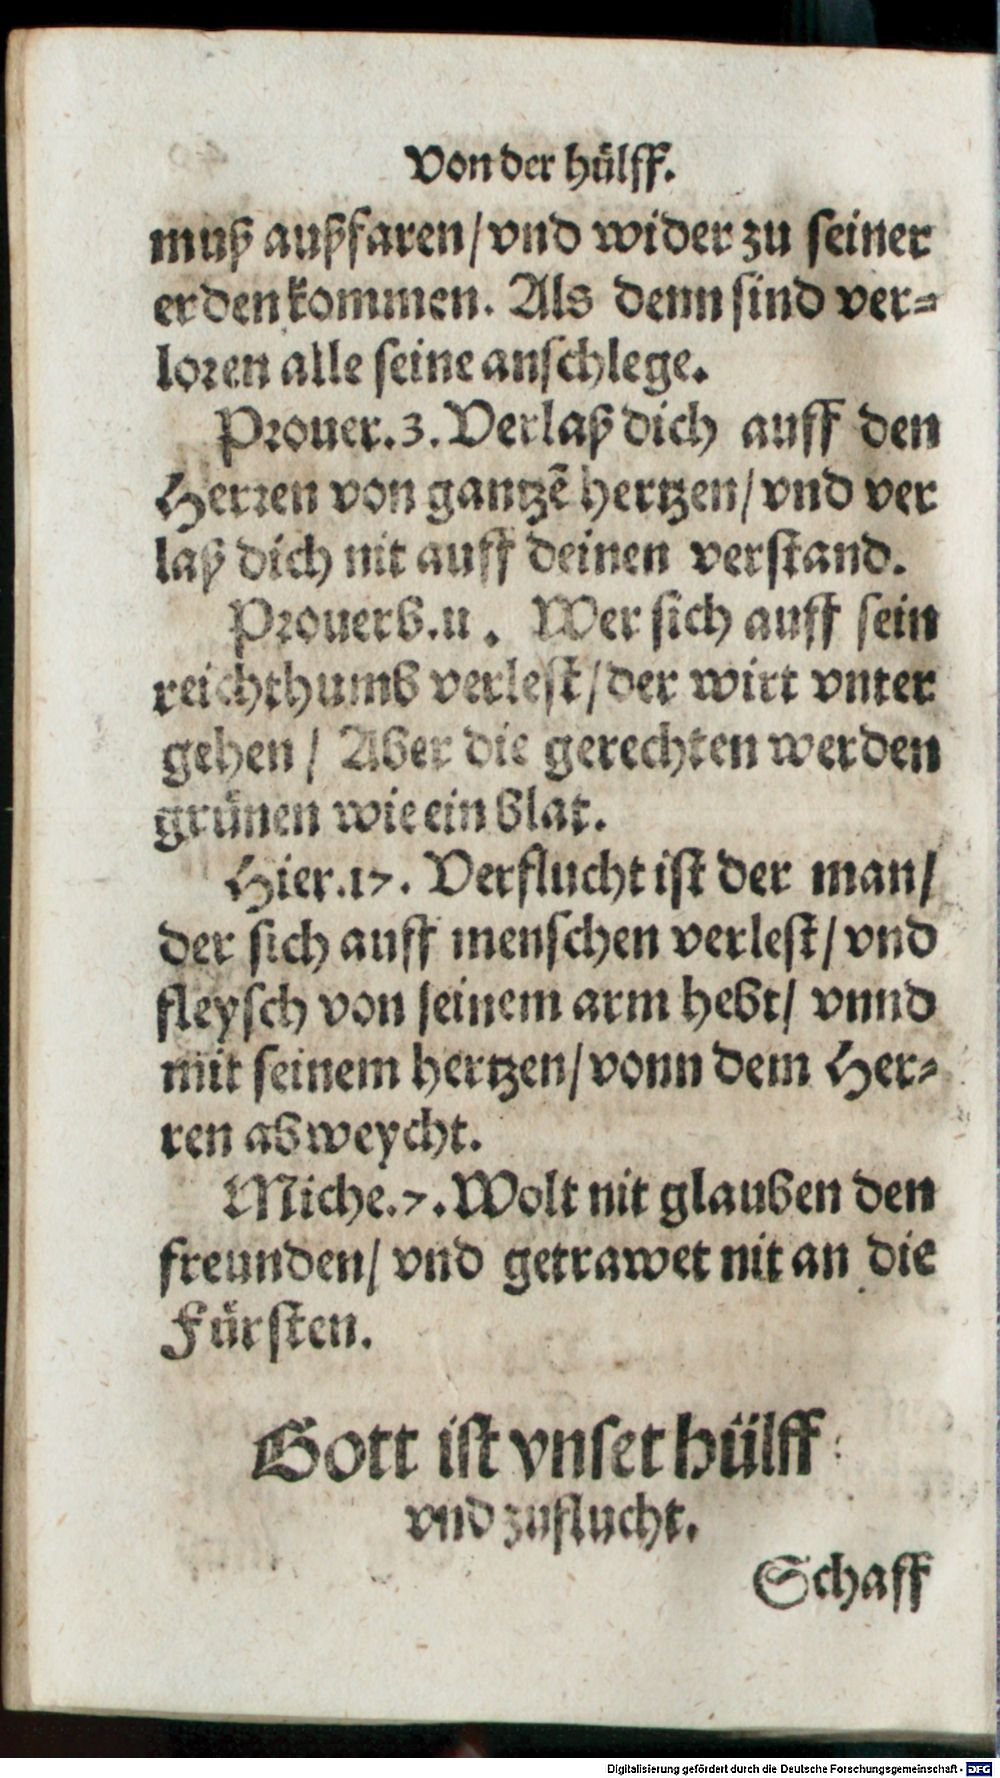 Von der hülff.
muß außfaren/vnd wider zu seiner
erden kommen. Als denn sind ver=
loren alle seine anschlege.
Prouer.3. Verlaß dich auff den
Herren von gantzẽ hertzen/vnd ver
laß dich nit auff deinen verstand.
Prouerb.11. Wer sich auff sein
reichthumb verlest/der wirt vnter
gehen/ Aber die gerechten werden
grünen wie ein blat.
Hier.17. Verflucht ist der man/
der sich auff menschen verlest/vnd
fleysch von seinem arm hebt/ vnnd
mit seinem hertzen/vonn dem Her=
ren abweycht.
Miche.7. Wolt nit glauben den
freunden/vnd getrawet nit an die
Fürsten.
Gott ist vnset hülff
vnd zuflucht.
Schaff
Digitalisierung gefördert durch die Deutsche Forschungsgemeinschaft - DFG